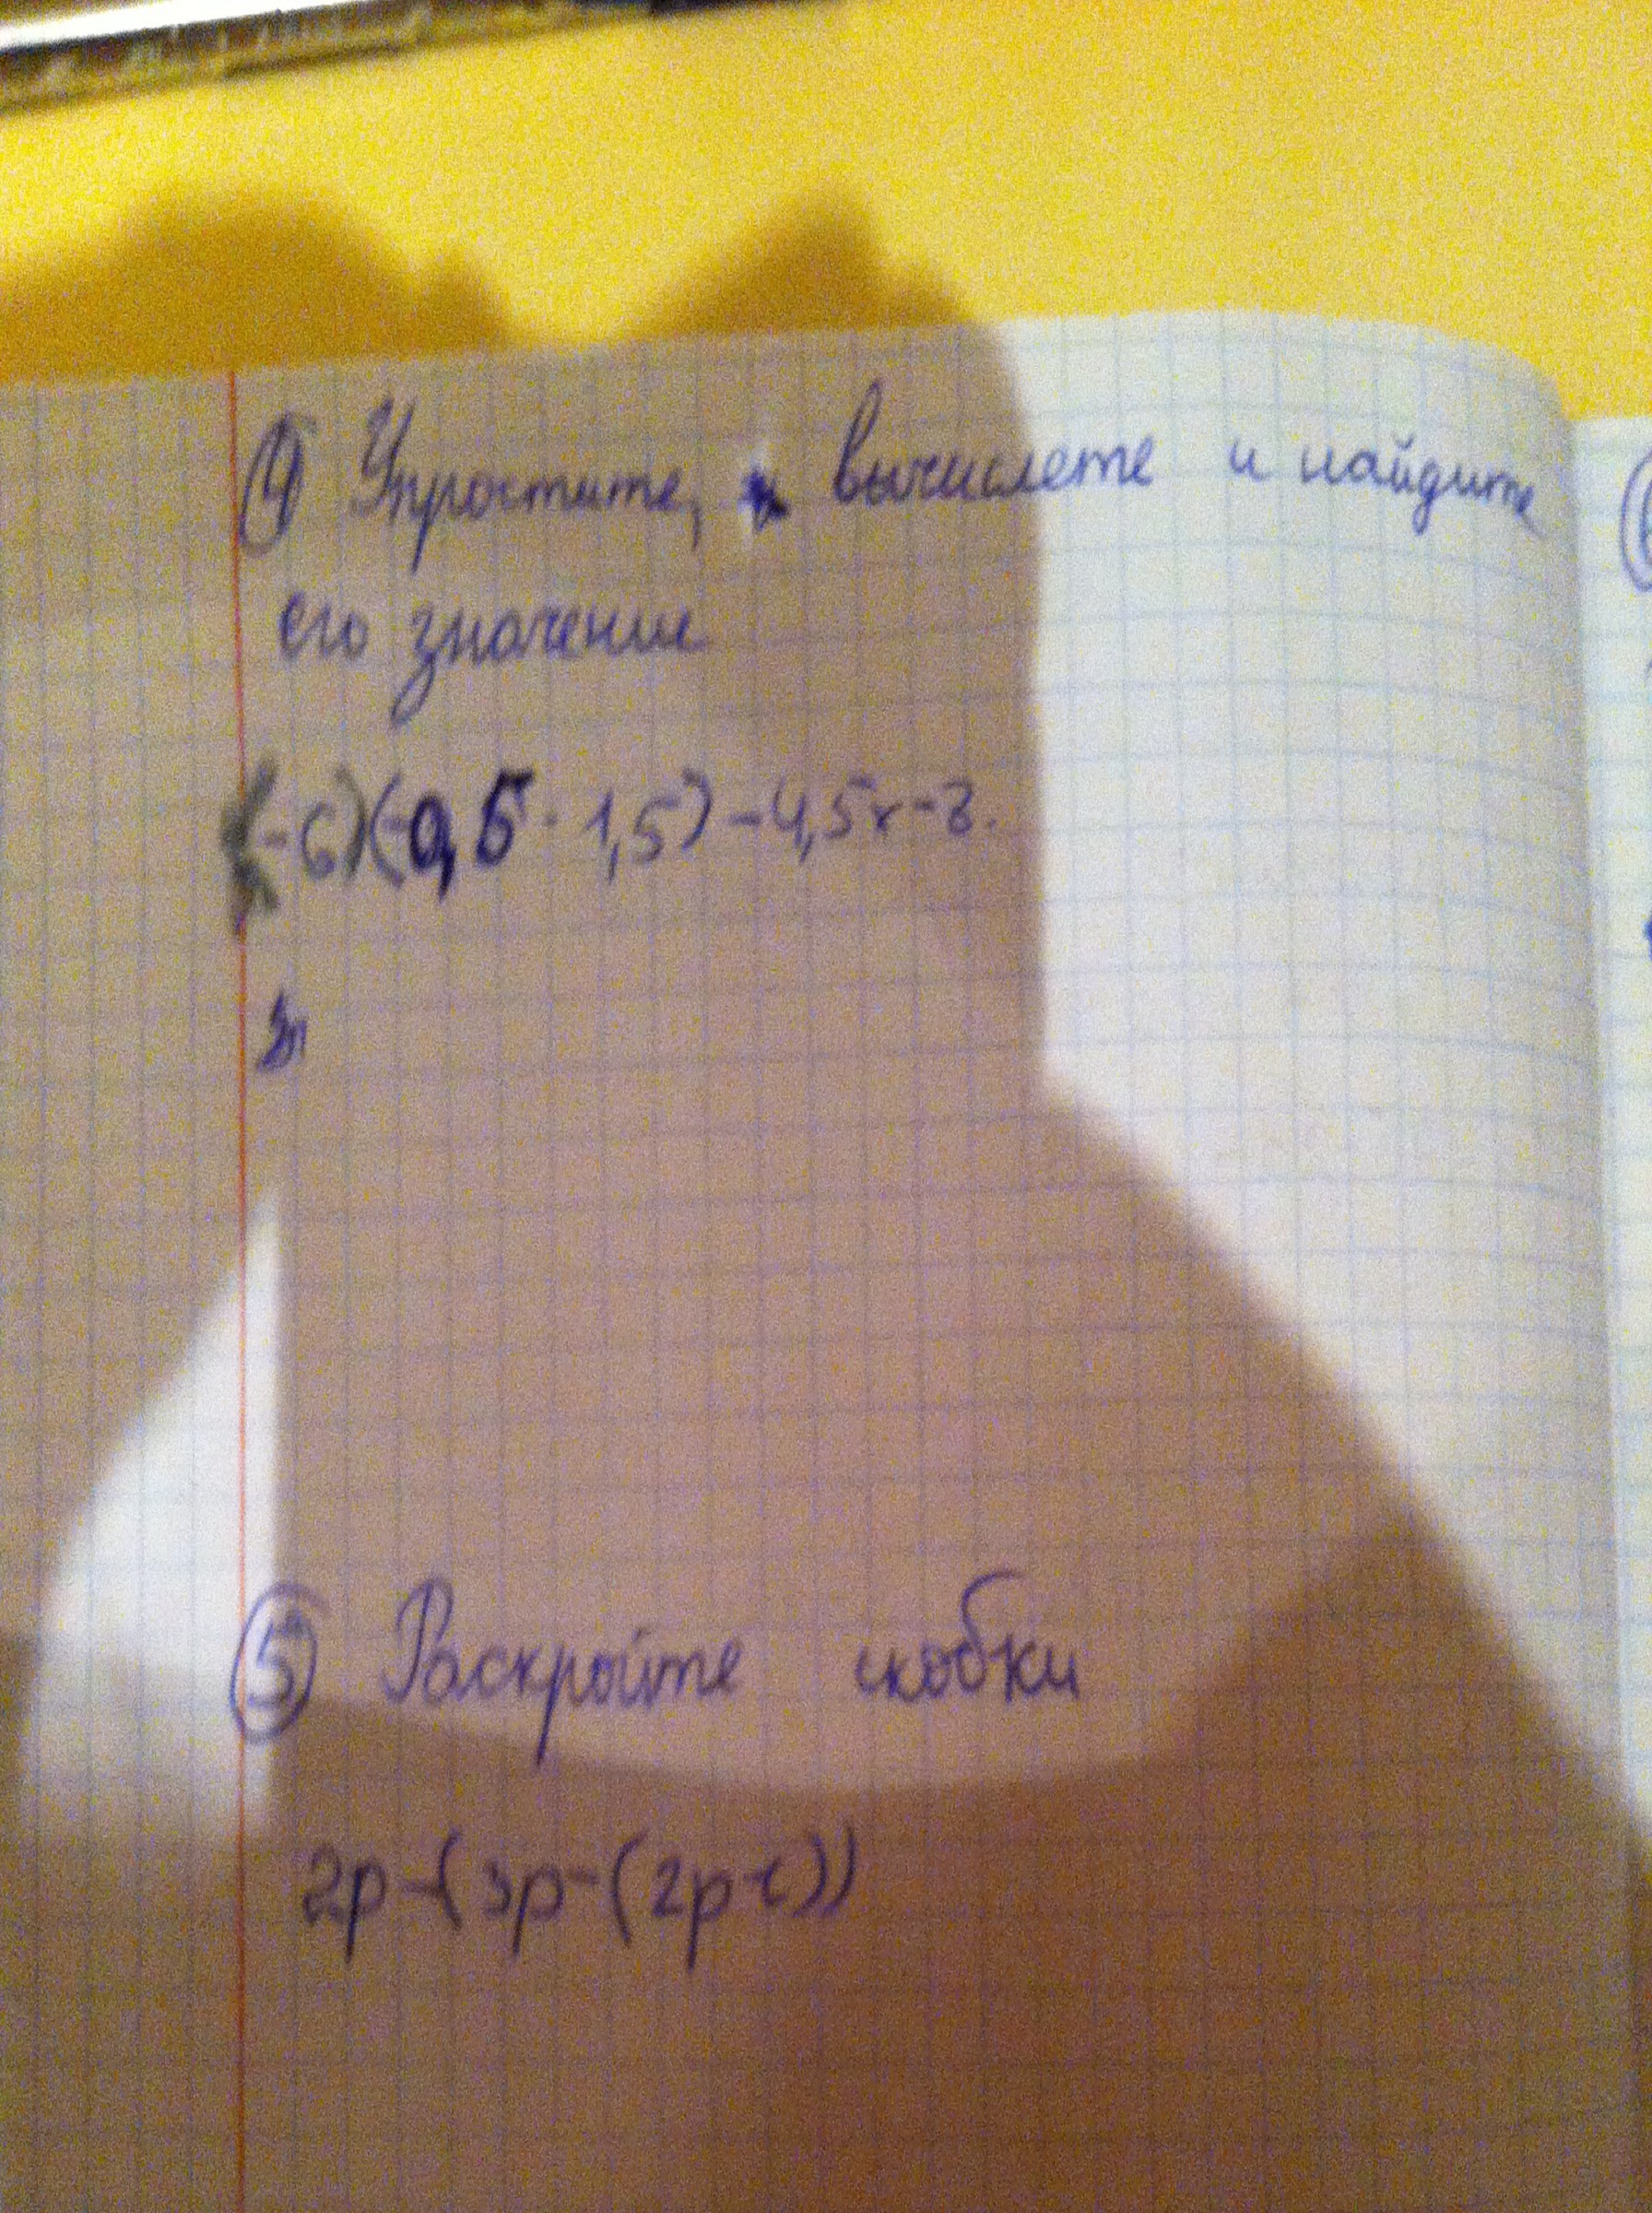 ④ Упростите, вычислете и найдите
его значение
(-6)(-0,5 · 1,5) - 4,5x - 8.
⑤ Раскройте скобки
2p-(3p-(2p-c))